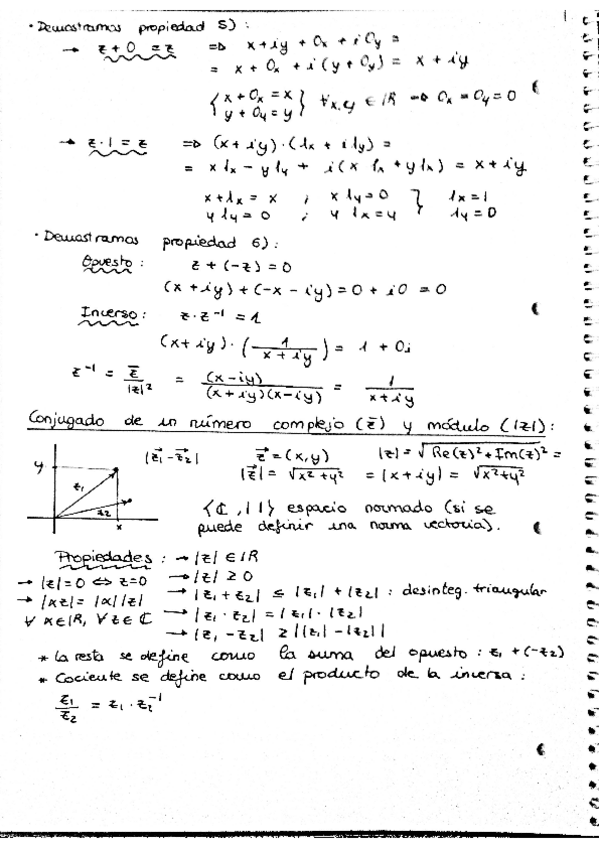 · Demostramos propiedad 5):
→ z + 0 = z ⇒ x + iy + 0x + i0y =
= x + 0x + i(y + 0y) = x + iy
{ x + 0x = x
y + 0y = y } ∀x,y ∈ IR ⇒ 0x = 0y = 0
→ z · 1 = z ⇒ (x + iy) · (1x + i1y) =
= x1x − y1y + i(x 1y + y1x) = x + iy
x + 1x = x ; x 1y = 0 } 1x = 1
y 1y = 0 ; y 1x = y 1y = 0
· Demostramos propiedad 6):
Opuesto: z + (−z) = 0
(x + iy) + (−x − iy) = 0 + i0 = 0
Inverso: z · z⁻¹ = 1
(x + iy) · (1/(x + iy)) = 1 + 0i
z⁻¹ = z̄/|z|² = (x − iy)/((x + iy)(x − iy)) = 1/(x + iy)
Conjugado de un número complejo (z̄) y módulo (|z|):
y z₁ z₂ x
|z⃗₁ − z⃗₂| z⃗ = (x, y) |z| = √(Re(z)² + Im(z)²) =
|z⃗| = √(x² + y²) = |x + iy| = √(x² + y²)
{ℂ, | |} espacio normado (si se
puede definir una norma vectorial).
Propiedades: → |z| ∈ IR
→ |z| = 0 ⇔ z = 0 → |z| ≥ 0
→ |αz| = |α||z| → |z₁ + z₂| ≤ |z₁| + |z₂| : desinteg. triangular
∀ α ∈ IR, ∀ z ∈ ℂ → |z₁ · z₂| = |z₁| · |z₂|
→ |z₁ − z₂| ≥ ||z₁| − |z₂||
* La resta se define como la suma del opuesto: z₁ + (−z₂)
* Cociente se define como el producto de la inversa:
z₁/z₂ = z₁ · z₂⁻¹